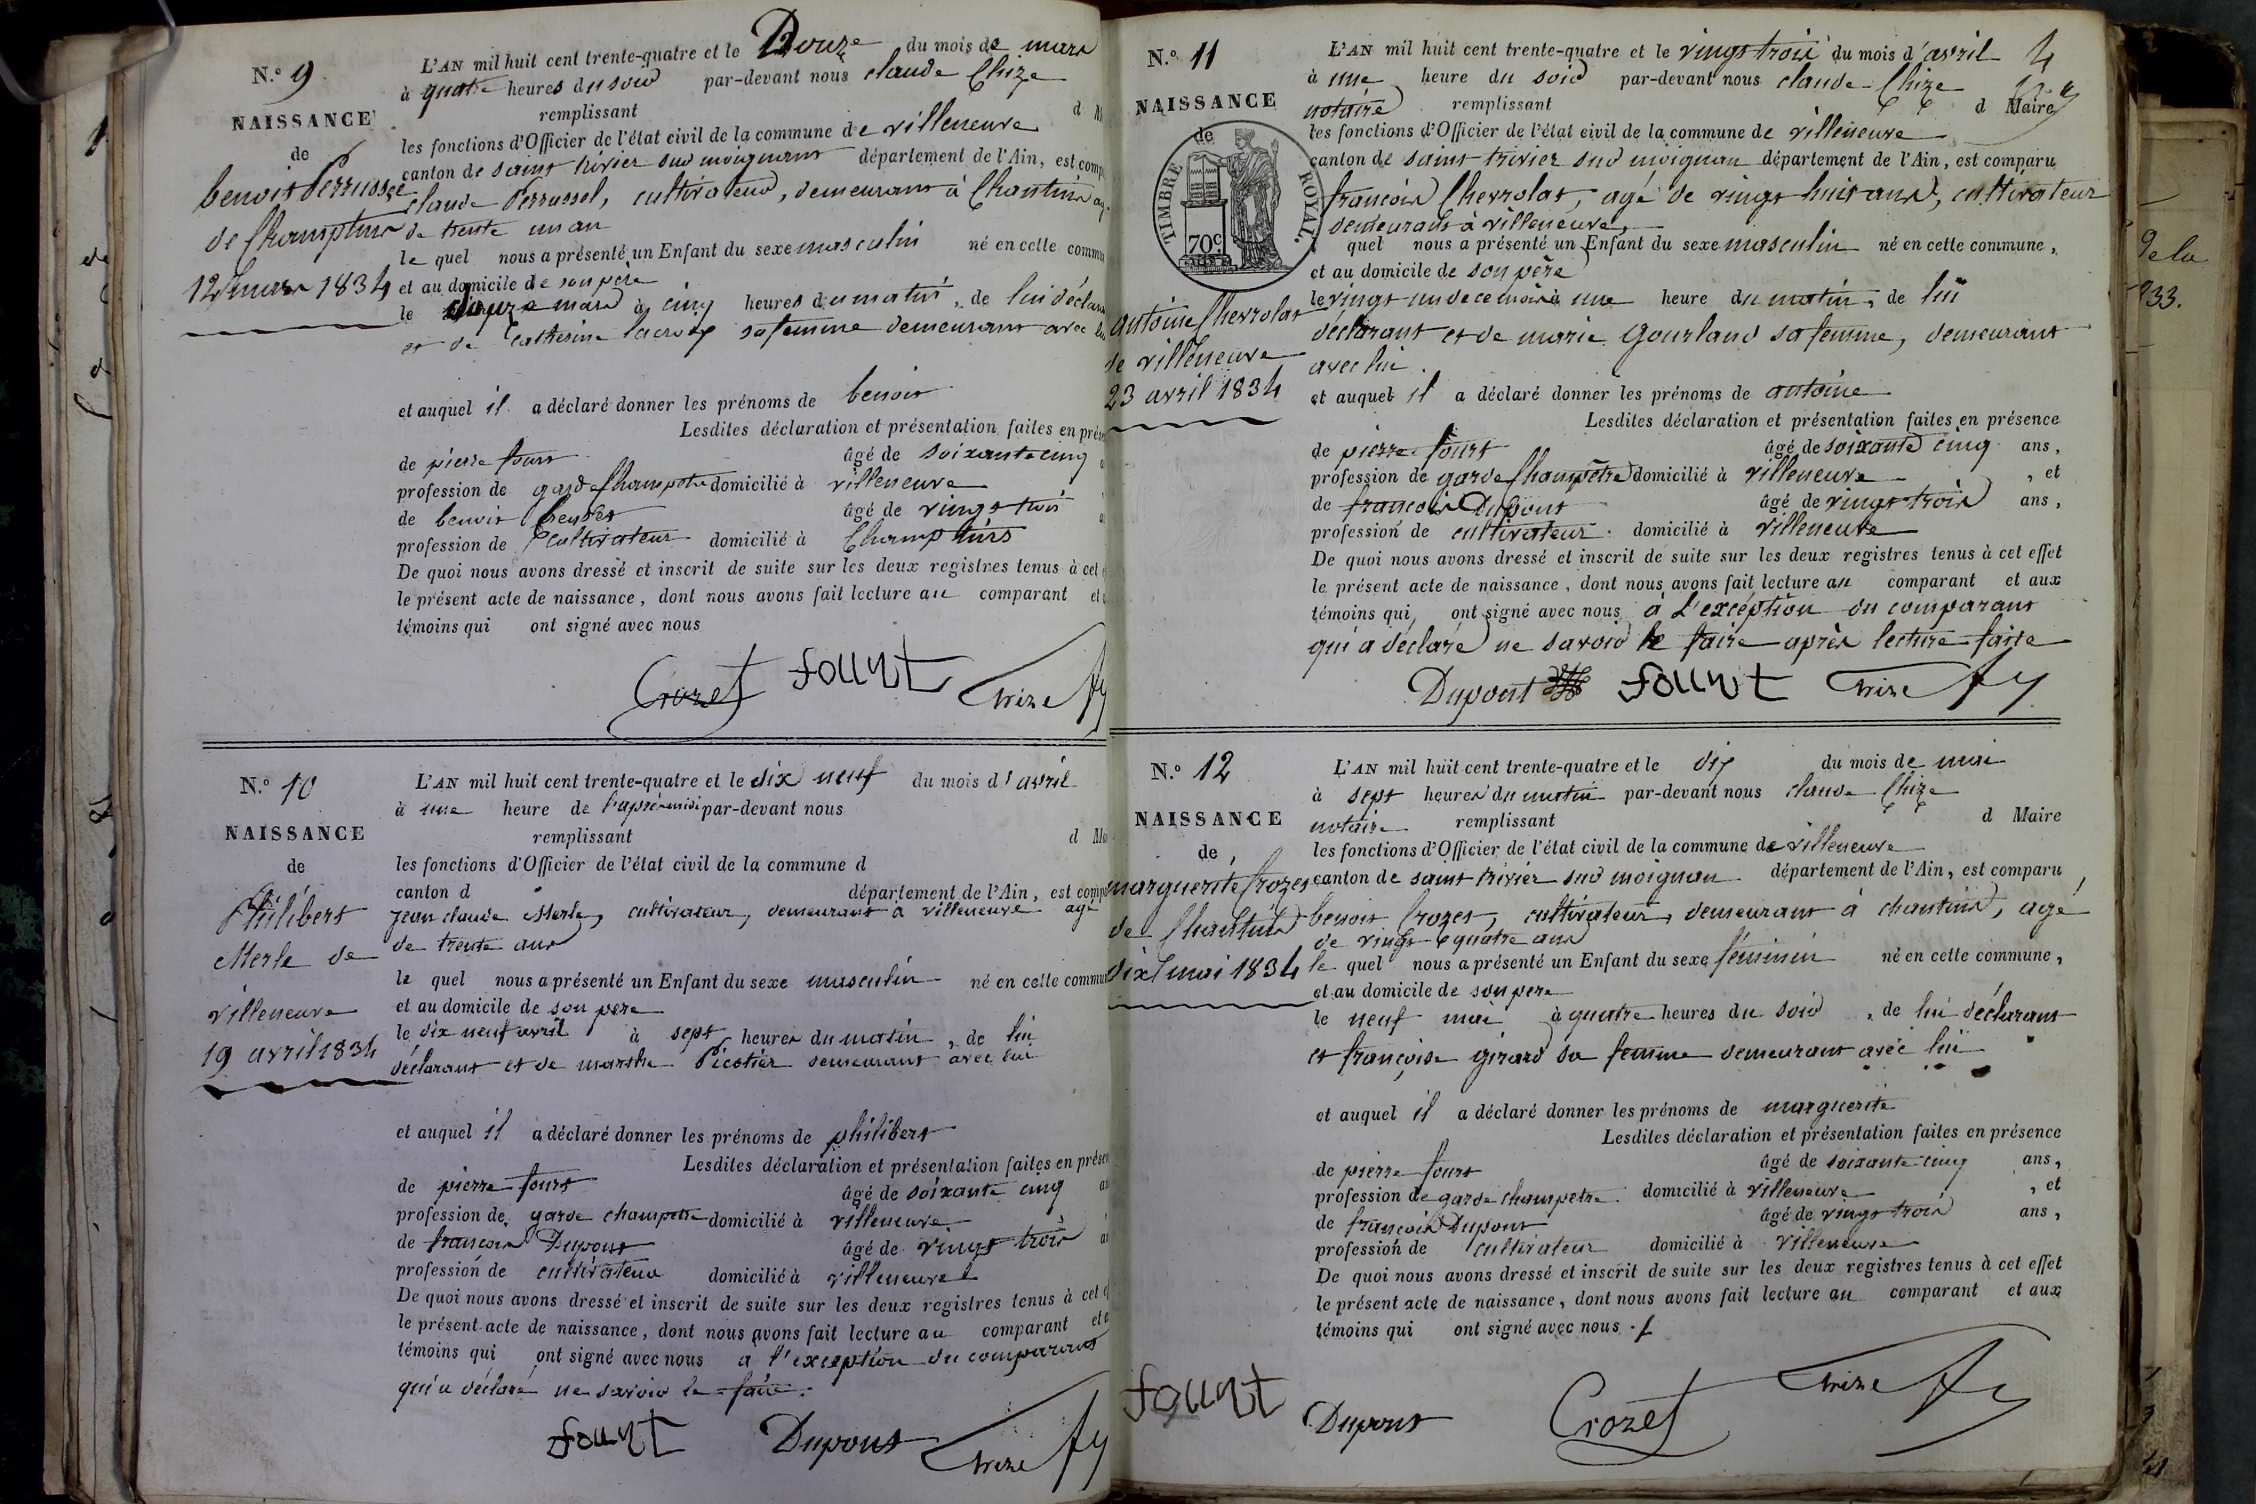 N.º 9
NAISSANCE
de
benoit Perrussel
de Champtins
12 mars 1834
L'AN mil huit cent trente-quatre et le Douze du mois de mars
à quatre heures du soir par-devant nous claude Chize
remplissant d M
les fonctions d'Officier de l'état civil de la commune de villeneuve
canton de saint trivier sur moignans département de l'Ain, est comp
claude Perrussel, cultivateur, demeurant à Chantins ag
de trente un an
le quel nous a présenté un Enfant du sexe masculin né en cette commu
et au domicile de son père
le douze mars à cinq heures du matin, de lui déclara
et de Catherine lacroix sa femme demeurant avec lui
et auquel il a déclaré donner les prénoms de benoit
Lesdites déclaration et présentation faites en prése
de pierre fourt âgé de soixante cinq
profession de garde Champetre domicilié à villeneuve
de benoit âgé de vingt trois
profession de cultivateur domicilié à Champtins
De quoi nous avons dressé et inscrit de suite sur les deux registres tenus à cet
le présent acte de naissance, dont nous avons fait lecture au comparant et
témoins qui ont signé avec nous
Crozet fount Chize
N.º 10
NAISSANCE
de
Philibert
Merle de
villeneuve
19 avril 1834
L'AN mil huit cent trente-quatre et le dix neuf du mois d'avril
à une heure de l'après-midi par-devant nous
remplissant d Ma
les fonctions d'Officier de l'état civil de la commune d
canton d département de l'Ain, est compa
jean claude Merle, cultivateur, demeurant à villeneuve agé
de trente ans
le quel nous a présenté un Enfant du sexe masculin né en cette commun
et au domicile de son pere
le dix neuf avril à sept heures du matin, de lui
déclarant et de marthe Picotier demeurant avec lui
et auquel il a déclaré donner les prénoms de philibert
Lesdites déclaration et présentation faites en présen
de pierre fourt âgé de soixante cinq an
profession de garde champetre domicilié à villeneuve
de francois Dupont âgé de vingt trois an
profession de cultivateur domicilié à villeneuve
De quoi nous avons dressé et inscrit de suite sur les deux registres tenus à cet
le présent acte de naissance, dont nous avons fait lecture au comparant et
témoins qui ont signé avec nous à l'exception du comparant
qui a déclaré ne savoir le faire.
fount Dupont Chize
N.º 11
NAISSANCE
de
TIMBRE ROYAL.
70c
antoine Chevrolat
de villeneuve
23 avril 1834
4
L'AN mil huit cent trente-quatre et le vingt trois du mois d'avril
à une heure du soir par-devant nous claude Chize
notaire remplissant d Maire
les fonctions d'Officier de l'état civil de la commune de villeneuve
canton de saint trivier sur moignan département de l'Ain, est comparu
françois Chevrolat, agé de vingt huit ans, cultivateur
demeurant à villeneuve,
quel nous a présenté un Enfant du sexe masculin né en cette commune,
et au domicile de son père
le vingt un de ce mois à une heure du matin, de lui
déclarant et de marie Gourland sa femme, demeurant
avec lui.
et auquel il a déclaré donner les prénoms de antoine
Lesdites déclaration et présentation faites en présence
de pierre fourt âgé de soixante cinq ans,
profession de garde Champêtre domicilié à villeneuve, et
de francois Dupont âgé de vingt trois ans,
profession de cultivateur. domicilié à villeneuve
De quoi nous avons dressé et inscrit de suite sur les deux registres tenus à cet effet
le présent acte de naissance, dont nous avons fait lecture au comparant et aux
témoins qui, ont signé avec nous à L'exception du comparant
qui a déclaré ne savoir le faire après lecture faite
Dupont fount Chize
N.º 12
NAISSANCE
de
marguerite Crozet
de Chantins
dix mai 1834
L'AN mil huit cent trente-quatre et le dix du mois de mai
à sept heures du matin par-devant nous claude Chize
notaire remplissant d Maire
les fonctions d'Officier de l'état civil de la commune de villeneuve
canton de saint trivier sur moignan département de l'Ain, est comparu
benoit Crozet, cultivateur, demeurant à chantins, agé
de vingt quatre ans
le quel nous a présenté un Enfant du sexe féminin né en cette commune,
et au domicile de son pere
le neuf mai à quatre heures du soir, de lui déclarant
et françoise girard sa femme demeurant avec lui
et auquel il a déclaré donner les prénoms de marguerite
Lesdites déclaration et présentation faites en présence
de pierre fourt âgé de soixante cinq ans,
profession de garde champetre. domicilié à villeneuve, et
de francois Dupont âgé de vingt trois ans,
profession de cultivateur domicilié à villeneuve
De quoi nous avons dressé et inscrit de suite sur les deux registres tenus à cet effet
le présent acte de naissance, dont nous avons fait lecture au comparant et aux
témoins qui ont signé avec nous.
fount Dupont Crozet Chize
de la
33.